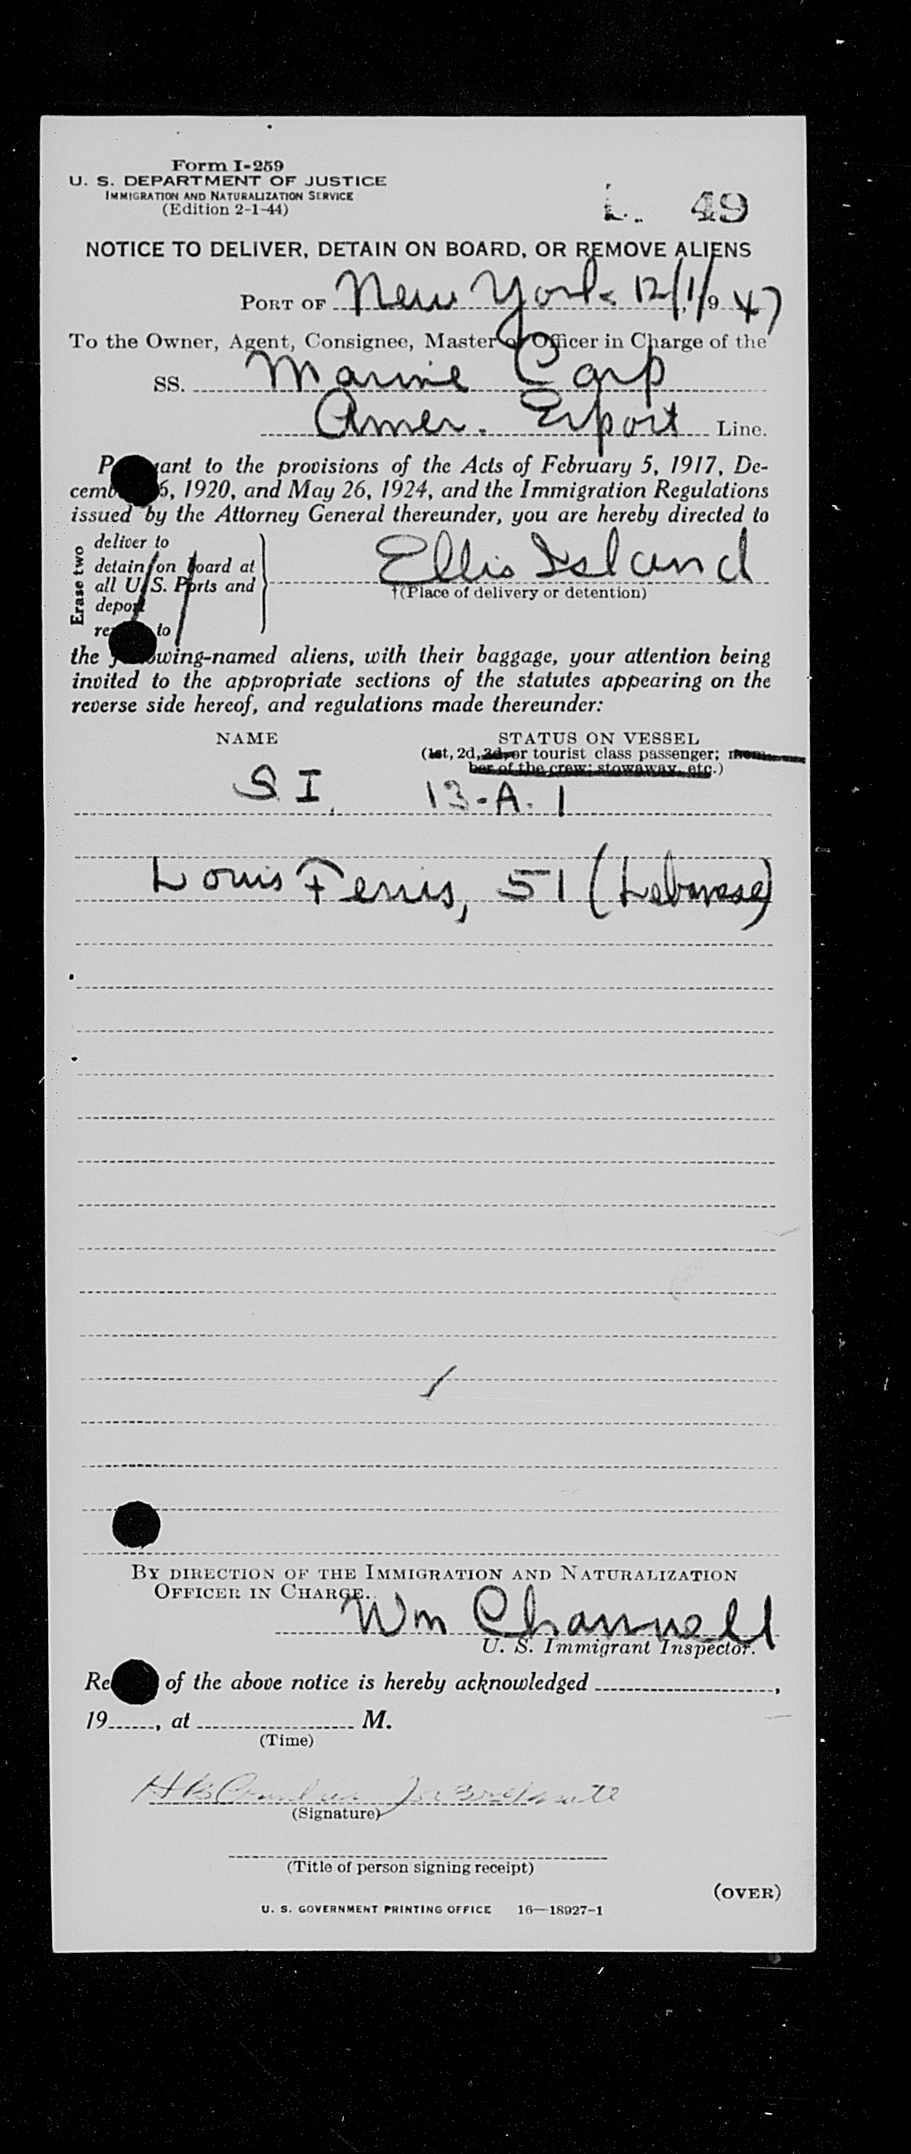 Form I-259
U. S. DEPARTMENT OF JUSTICE
IMMIGRATION AND NATURALIZATION SERVICE
(Edition 2-1-44)
49
NOTICE TO DELIVER, DETAIN ON BOARD, OR REMOVE ALIENS
PORT OF New York 12/1/, 1947
To the Owner, Agent, Consignee, Master or Officer in Charge of the
SS. Marine Carp
Amer. Export Line.
Pursuant to the provisions of the Acts of February 5, 1917, De-
cember 26, 1920, and May 26, 1924, and the Immigration Regulations
issued by the Attorney General thereunder, you are hereby directed to
Erase two
deliver to
detain on board at
all U. S. Ports and
deport
remove to
Ellis Island
†(Place of delivery or detention)
the following-named aliens, with their baggage, your attention being
invited to the appropriate sections of the statutes appearing on the
reverse side hereof, and regulations made thereunder:
NAME STATUS ON VESSEL
(1st, 2d, 3d, or tourist class passenger; mem-
ber of the crew; stowaway, etc.)
S I. 13-A-1
Louis Ferris, 51 (Lebanese)
By direction of the Immigration and Naturalization
Officer in Charge.
Wm Channell
U. S. Immigrant Inspector.
Receipt of the above notice is hereby acknowledged
19, at M.
(Time)
(Signature)
(Title of person signing receipt)
(OVER)
U. S. GOVERNMENT PRINTING OFFICE 16—18927-1